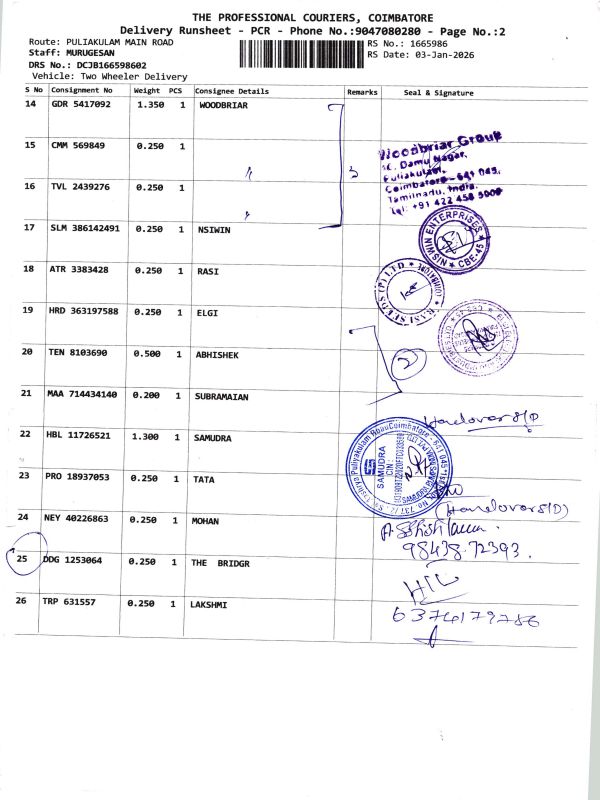 THE PROFESSIONAL COURIERS, COIMBATORE
Delivery Runsheet - PCR - Phone No.:9047080280 - Page No.:2
Route: PULIAKULAM MAIN ROAD
RS No.: 1665986
Staff: MURUGESAN
RS Date: 03-Jan-2026
DRS No.: DCJB166598602
Vehicle: Two Wheeler Delivery
S No Consignment No Weight PCS Consignee Details Remarks Seal & Signature
14 GDR 5417092 1.350 1 WOODBRIAR
15 CMM 569849 0.250 1
16 TVL 2439276 0.250 1
3
Woodbriar Group
Damu Nagar,
Puliakulam,
Coimbatore - 641 045,
Tamilnadu, India.
Tel: +91 422 458 5000
17 SLM 386142491 0.250 1 NSIWIN
NSIWIN ENTERPRISES
CBE-45
18 ATR 3383428 0.250 1 RASI
RASI SEEDS (P) LTD
19 HRD 363197588 0.250 1 ELGI
20 TEN 8103690 0.500 1 ABHISHEK
2
21 MAA 714434140 0.200 1 SUBRAMAIAN
Handover S/D
22 HBL 11726521 1.300 1 SAMUDRA
SAMUDRA
CIN :
23 PRO 18937053 0.250 1 TATA
(Handover S/D)
24 NEY 40226863 0.250 1 MOHAN
98438 72393.
25 DDG 1253064 0.250 1 THE BRIDGR
26 TRP 631557 0.250 1 LAKSHMI
6374179786